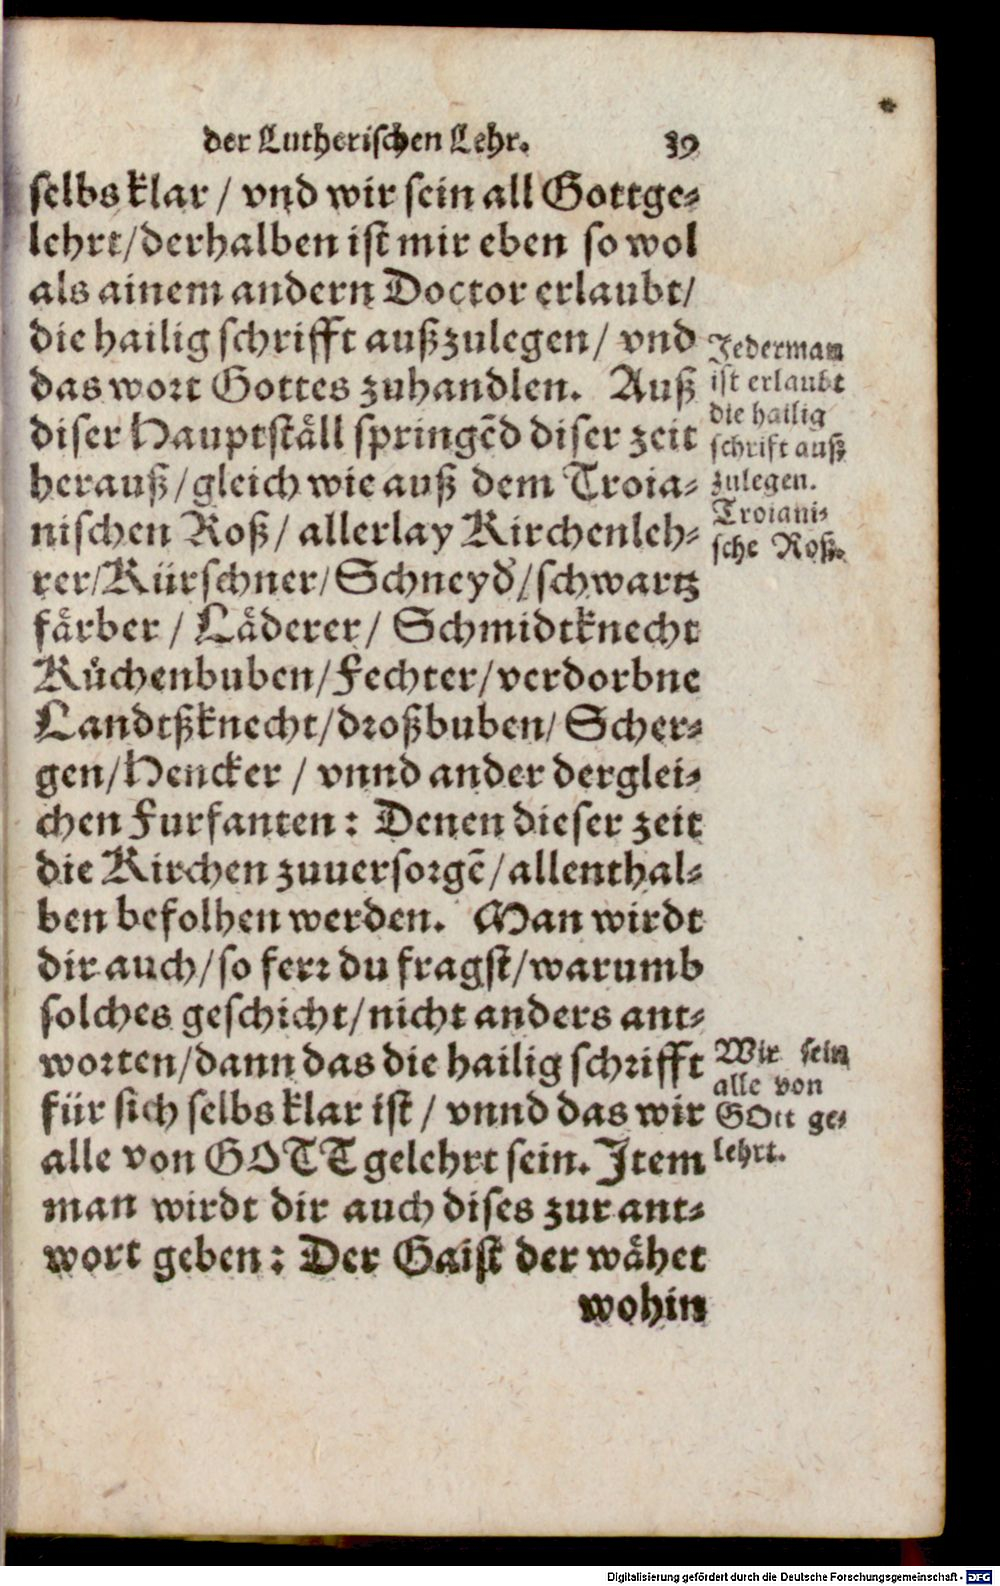 der Lutherischen Lehr. 39
selbs klar / vnd wir sein all Gottge-
lehrt/derhalben ist mir eben so wol
als ainem andern Doctor erlaubt/
die hailig schrifft außzulegen / vnd
das wort Gottes zuhandlen. Auß
diser Hauptståll springēd diser zeit
herauß/gleich wie auß dem Troia-
nischen Roß/ allerlay Kirchenleh-
rer/Kürschner/Schneyd'/schwartz
fårber / Låderer/ Schmidtknecht
Kůchenbuben/Fechter/verdorbne
Landtßknecht/droßbuben/Scher-
gen/Hencker / vnnd ander derglei-
chen Furfanten: Denen dieser zeit
die Kirchen zuuersorgē/allenthal-
ben befolhen werden. Man wirdt
dir auch/so ferr du fragst/warumb
solches geschicht/nicht anders ant-
worten/dann das die hailig schrifft
für sich selbs klar ist / vnnd das wir
alle von GOTT gelehrt sein. Item
man wirdt dir auch dises zur ant-
wort geben: Der Gaist der wåhet
wohin
Jederman
ist erlaubt
die hailig
schrift auß
zulegen.
Troiani-
sche Roß.
Wir sein
alle von
GOtt ge-
lehrt.
Digitalisierung gefördert durch die Deutsche Forschungsgemeinschaft - DFG